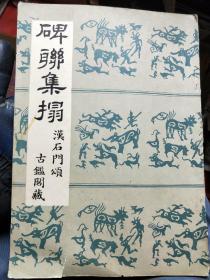 碑聯集搨
漢石門頌
古鑑閣藏